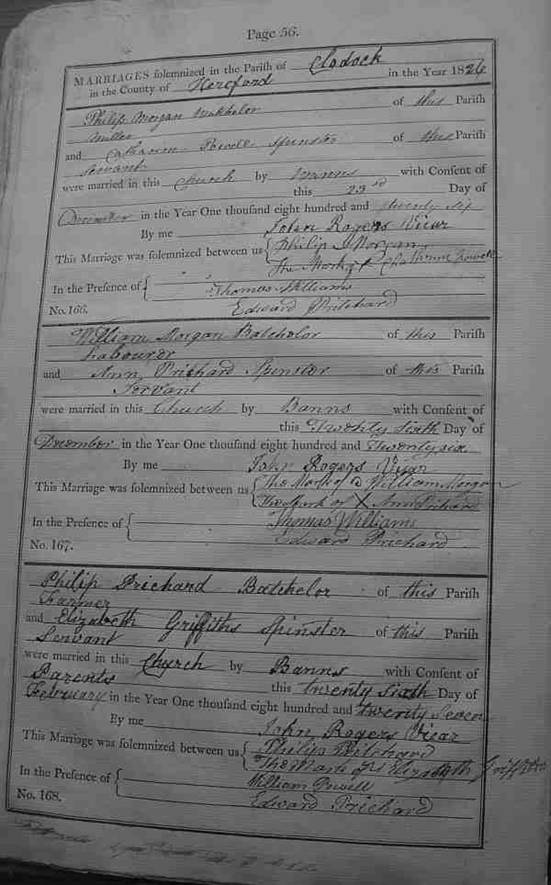 Page 56.
MARRIAGES solemnized in the Parish of Clodock
in the County of Hereford in the Year 1826
Philip Morgan Batchelor of this Parish
Miller
and Catharine Powell Spinster of this Parish
Servant
were married in this Church by Banns with Consent of
this 23rd Day of
December in the Year One thousand eight hundred and twenty six
By me John Rogers Vicar
This Marriage was solemnized between us { Philip Morgan
The Mark of X Catharine Powell
In the Presence of { Thomas Williams
Edward Pritchard
No. 166.
William Morgan Batchelor of this Parish
Labourer
and Ann Prichard Spinster of this Parish
Servant
were married in this Church by Banns with Consent of
this Twenty Sixth Day of
December in the Year One thousand eight hundred and Twenty six
By me John Rogers Vicar
This Marriage was solemnized between us { The Mark of William Morgan
The Mark of X Ann Prichard
In the Presence of { Thomas Williams
Edward Prichard
No. 167.
Philip Prichard Batchelor of this Parish
Farmer
and Elizabeth Griffiths Spinster of this Parish
Servant
were married in this Church by Banns with Consent of
Parents this twenty Sixth Day of
February in the Year One thousand eight hundred and twenty Seven
By me John Rogers Vicar
This Marriage was solemnized between us { Philip Pritchard
The Mark of Elizabeth Griffiths
In the Presence of { William Powell
Edward Prichard
No. 168.